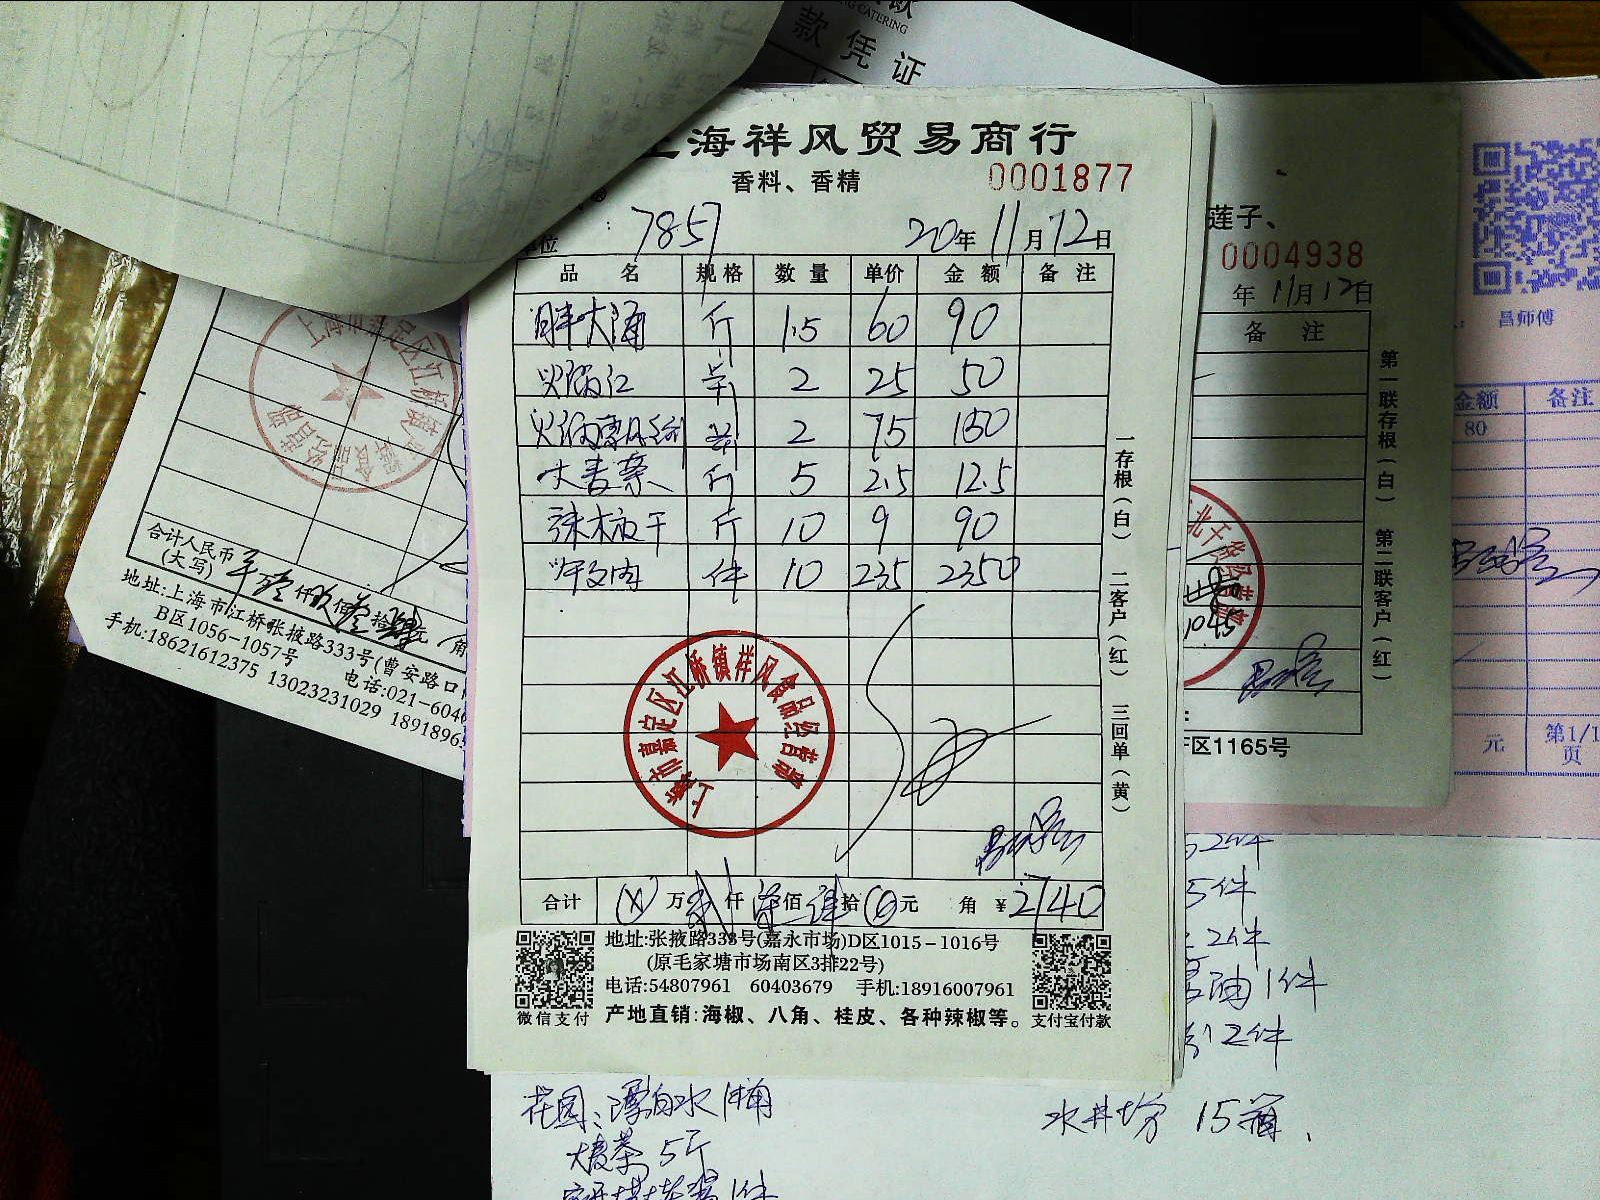 CATERING
款凭证
上海祥风贸易商行
香料、香精
0001877
单位:7857
20年11月12日
品名 规格 数量 单价 金额 备注
胖大海 斤 1.5 60 90
火锅红 2 25 50
火锅 2 75 150
大麦茶 斤 5 2.5 12.5
辣椒干 斤 10 9 90
件 10 235 2350
上海市嘉定区江桥镇祥风食品经营部
合计 ⊗万贰仟柒佰肆拾⓪元 角 ¥2740
地址:张掖路333号(嘉永市场)D区1015-1016号
(原毛家塘市场南区3排22号)
电话:54807961 60403679 手机:18916007961
产地直销:海椒、八角、桂皮、各种辣椒等。
微信支付
支付宝付款
一存根(白) 二客户(红) 三回单(黄)
合计人民币
(大写)
仟玖佰叁拾肆元 角
地址:上海市江桥张掖路333号(曹安路口
B区1056-1057号 电话:021-6040
手机:18621612375 13023231029 1891896
莲子、
0004938
年11月12日
备注
第一联存根(白) 第二联客户(红)
北干货经营
1045
区1165号
昌师傅
金额 备注
80
元 第1/1页
2件
5件
2件
油1件
2件
花园、漂白水1件
大麦茶 5斤
水井坊 15瓶